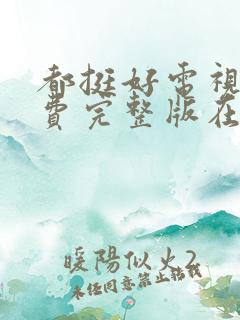 都挺好電視
費完整版在
暖陽似火2
未经同意禁止转载